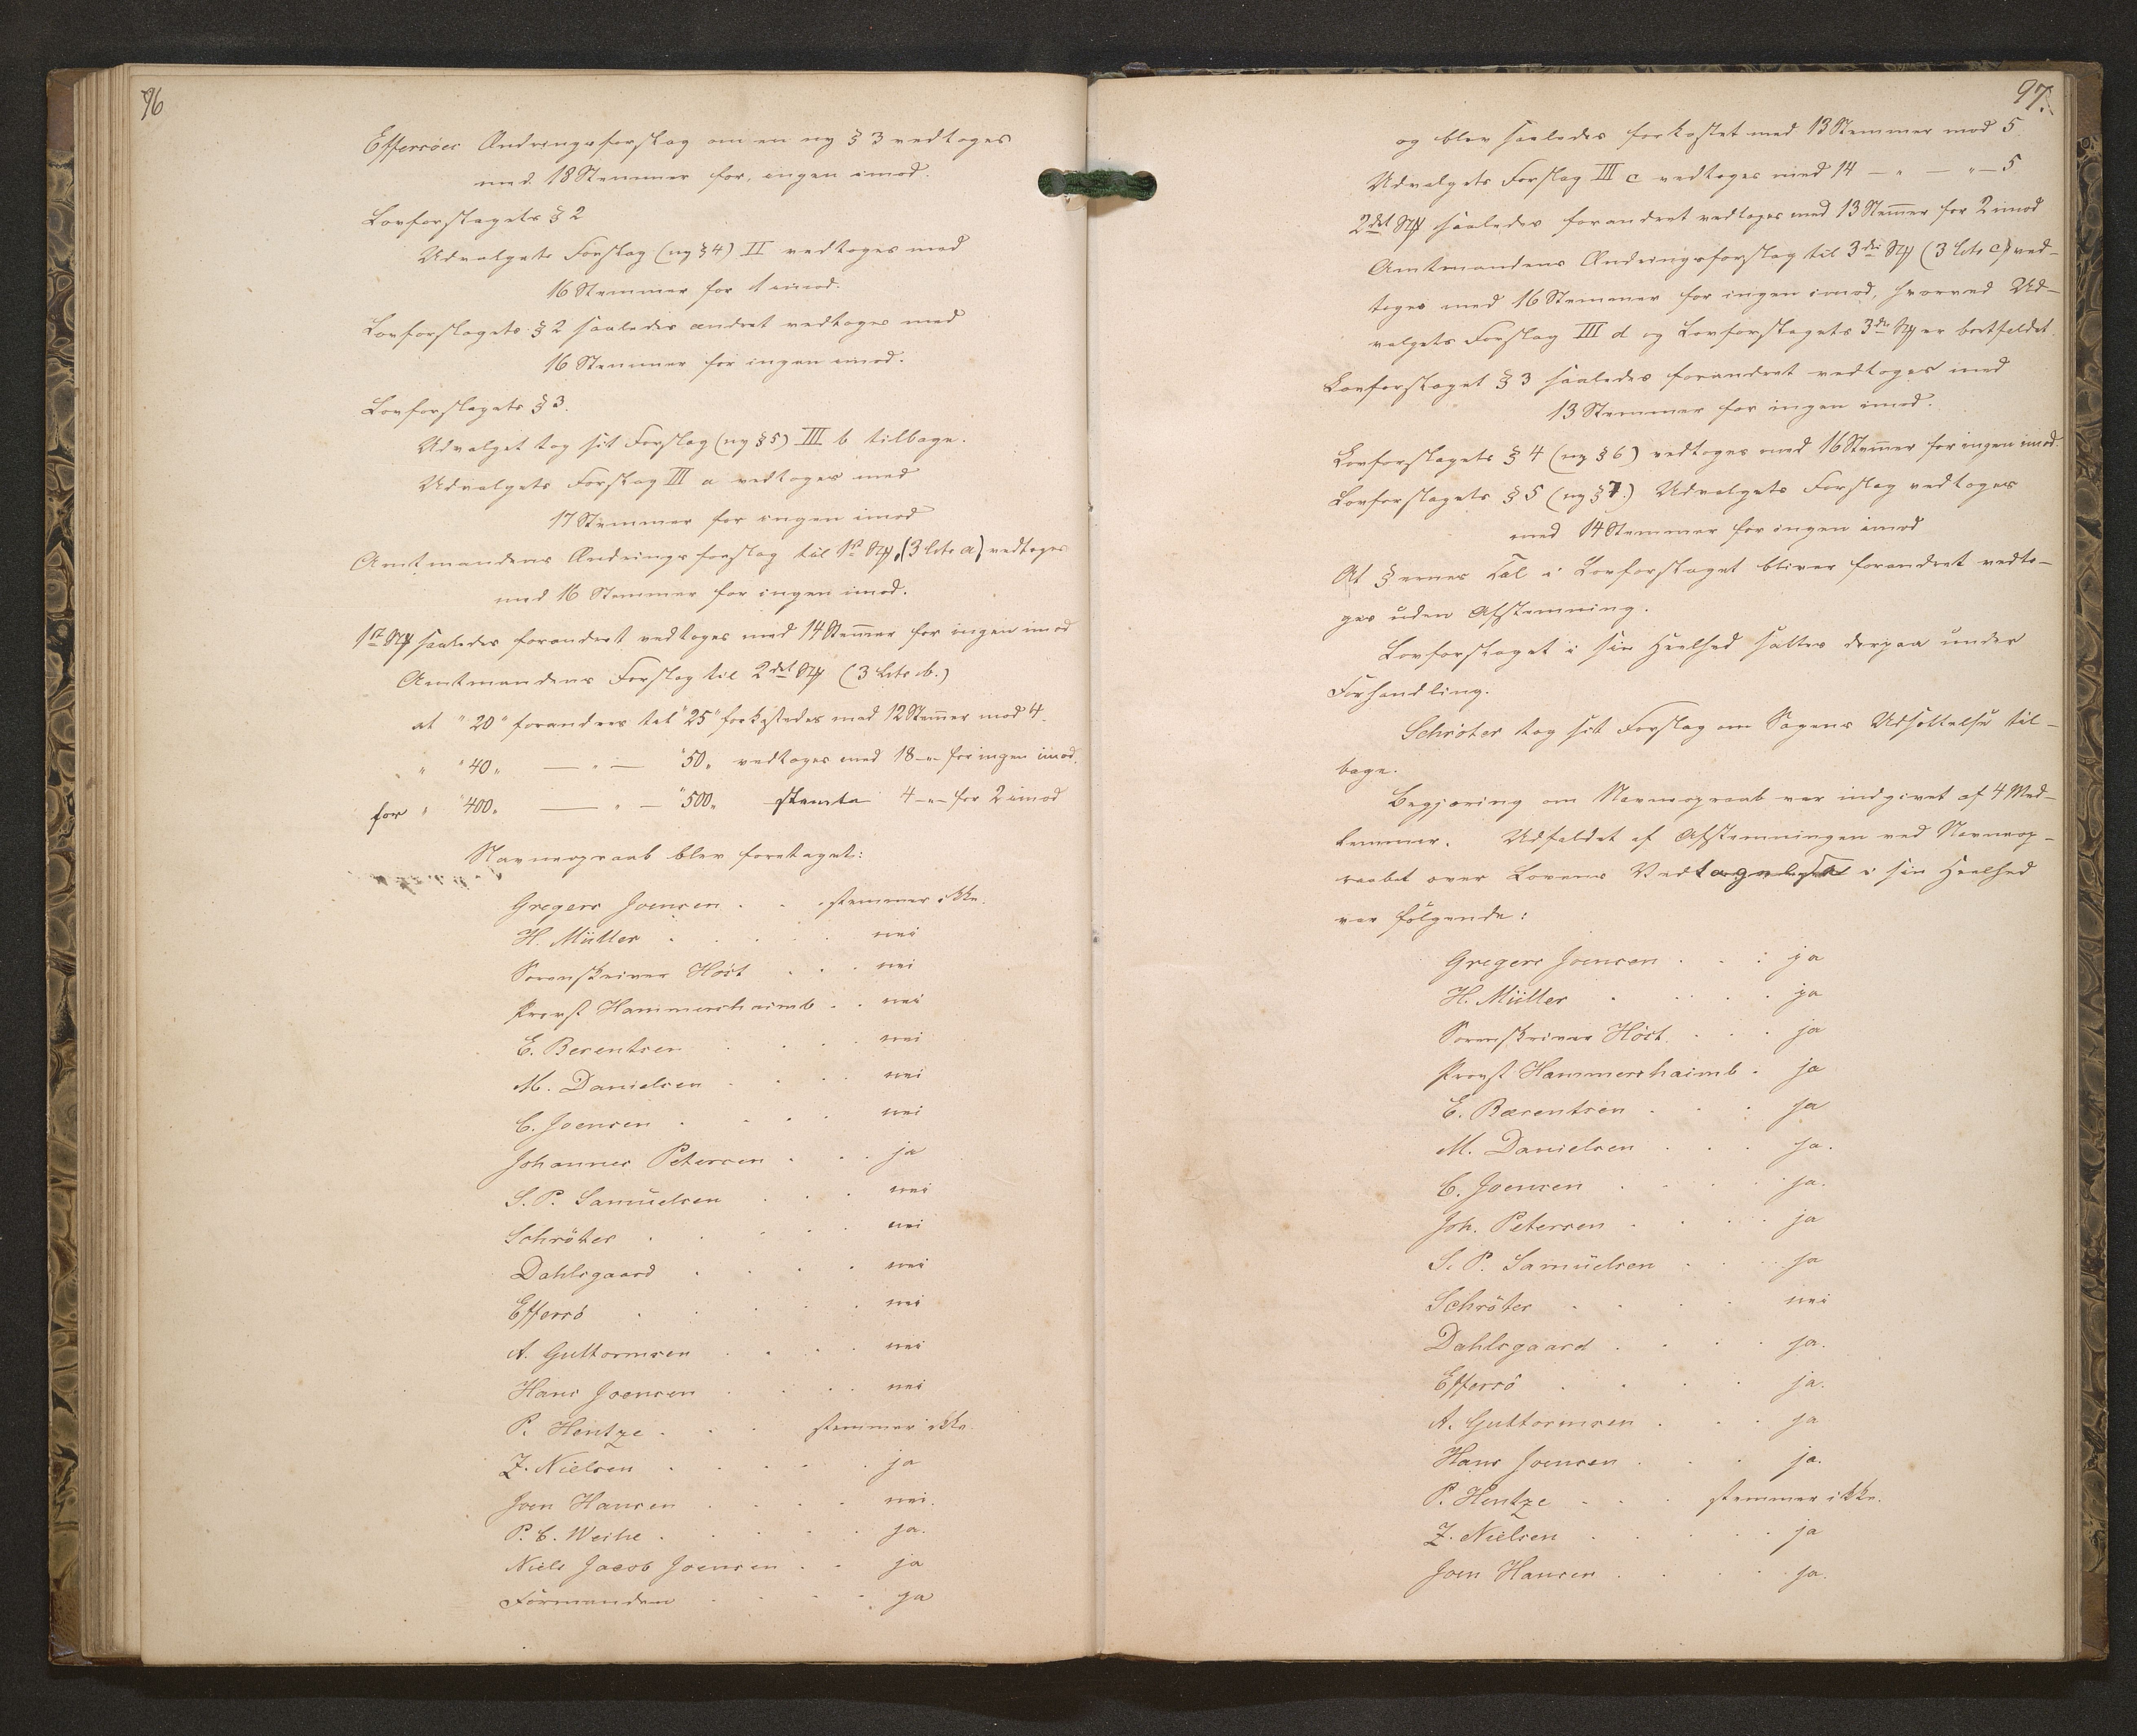 96
Effersöes Ændringsforslag om en ny § 3 vedtoges
med 18 Stemmer for, ingen imod.
Lovforslagets § 2
Udvalgets Forslag (ny § 4) II vedtoges med
16 Stemmer for 1 imod.
Lovforslagets § 2 saaledes ændret vedtoges med
16 Stemmer for ingen imod.
Lovforslagets § 3.
Udvalget tog sit Forslag (ny § 5) III b tilbage.
Udvalgets Forslag III a vedtoges med
17 Stemmer for ingen imod
Amtmandens Ændringsforslag til 1st Stk. (3 litr a) vedtoges
med 16 Stemmer for ingen imod.
1st Stk saaledes forandret vedtoges med 14 Stemmer for ingen imod
Amtmandens Forslag til 2det Stk (3 litr b.)
at "20" forandres til "25" forkastedes med 12 Stemmer mod 4.
" "40" — " — "50" vedtoges med 18 -"- for ingen imod.
for " "400" — " — "500" stemte 4 -"- for 2 imod
Navneopraab blev foretaget:
Gregers Joensen . . . stemmer ikke.
H. Müller . . . . . nei
Sorenskriver Höst . . . nei
Provst Hammershaimb . . nei
E. Berentsen . . . . nei
M. Danielsen . . . . nei
C. Joensen . . . . nei
Johannes Petersen . . . ja
S. P. Samuelsen . . . nei
Schröter . . . . . nei
Dahlsgaard . . . . nei
Effersö . . . . . nei
A. Guttormsen . . . . nei
Hans Joensen . . . . nei
P. Hentze . . . stemmer ikke.
Z. Nielsen . . . . . ja
Joen Hansen . . . . nei.
P. C. Weihe . . . . . ja.
Niels Jacob Joensen . . ja
Formanden . . . . ja
97.
og blev saaledes forkastet med 13 Stemmer mod 5.
Udvalgets Forslag III c vedtoges med 14 — " — " — 5
2det Stk saaledes forandret vedtoges med 13 Stemmer for 2 imod
Amtmandens Ændringsforslag til 3die Stk (3 litr c) ved-
toges med 16 Stemmer for ingen imod, hvorved Ud-
valgets Forslag III d og Lovforslagets 3die Stk er bortfaldet.
Lovforslaget § 3 saaledes forandret vedtoges med
13 Stemmer for ingen imod.
Lovforslagets § 4 (ny § 6) vedtoges med 16 Stemmer for ingen imod.
Lovforslagets § 5 (ny § 7.) Udvalgets Forslag vedtoges
med 14 Stemmer for ingen imod
At § ernes Tal i Lovforslaget bliver forandret vedto-
ges uden Afstemning.
Lovforslaget i sin Heelhed sattes derpaa under
Forhandling.
Schröter tog sit Forslag om Sagens Udsættelse til-
bage.
Begjæring om Navneopraab var indgivet af 4 Med-
lemmer. Udfaldet af Afstemningen ved Navneop-
raabet over Lovens Vedtagelse i sin Heelhed
var fölgende:
Gregers Joensen . . . ja
H. Müller . . . . ja
Sorenskriver Höst . . . ja
Provst Hammershaimb . ja
E. Bærentsen . . . ja
M. Danielsen . . . ja.
C. Joensen . . . . ja.
Joh. Petersen . . . . ja
S. P. Samuelsen . . . ja
Schröter . . . . nei
Dahlsgaard . . . . ja.
Effersö . . . . ja.
A. Guttormsen . . . ja
Hans Joensen . . . ja.
P. Hentze . . . stemmer ikke.
Z. Nielsen . . . . . ja
Joen Hansen . . . . ja.